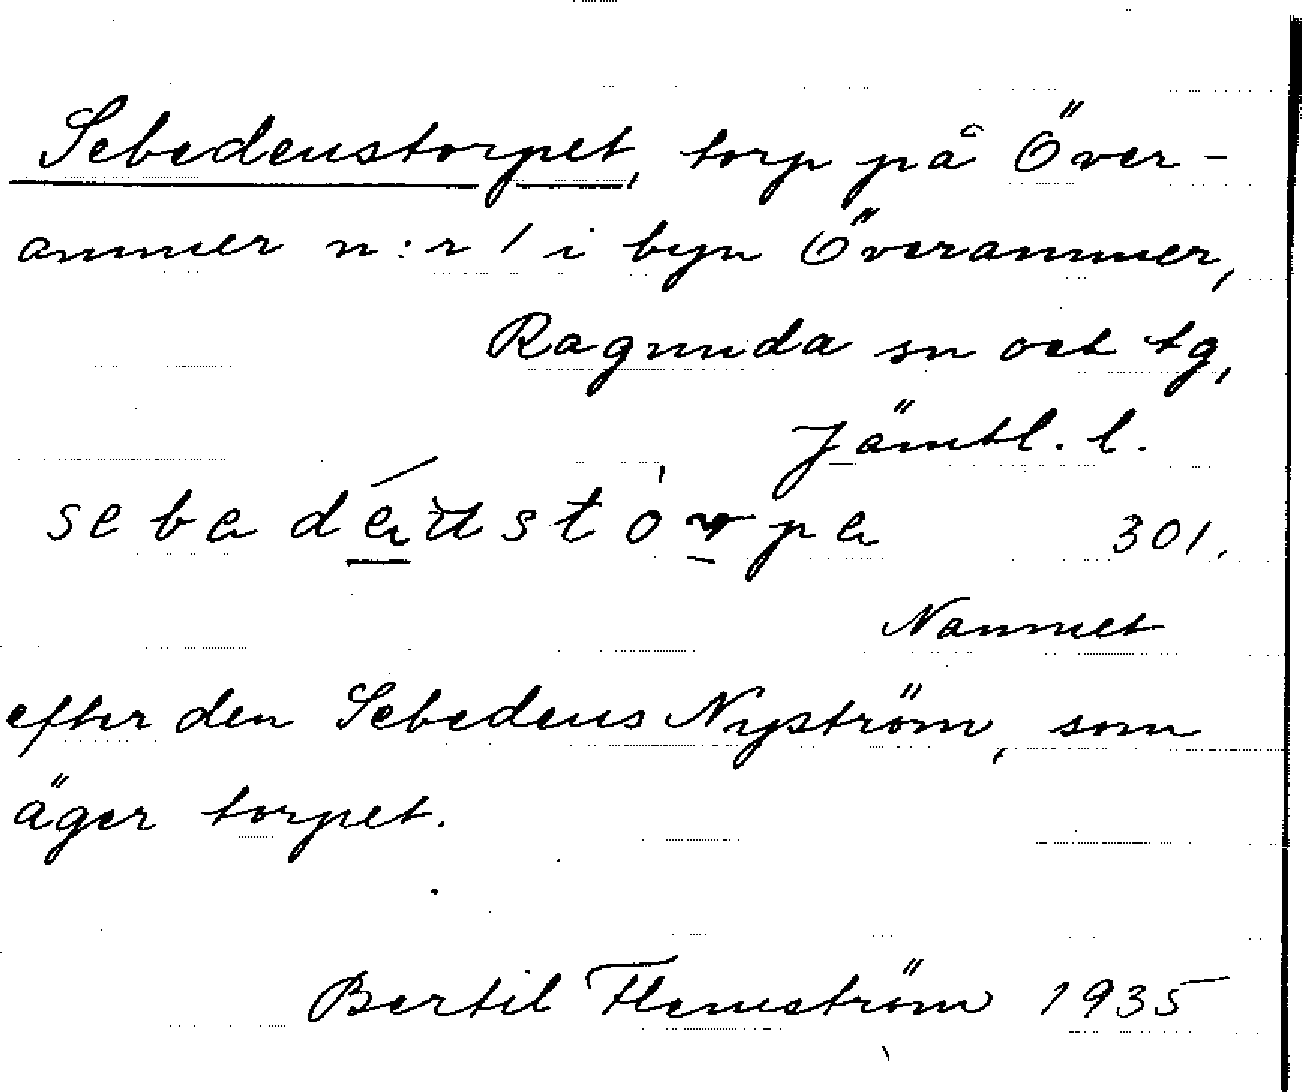 Sebedeustorpet, torp på Över-
ammer n:r 1 i byn Överammer,
Ragunda sn oct tg,
Jämtl. l.
sebadèustòrpa 301.
Namnet
efter den Sebedeus Nyström, som
äger torpet.
Bertil Flemström 1935